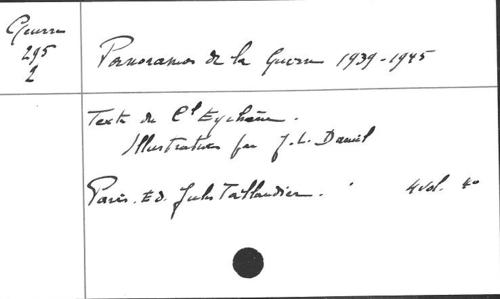 Guerre
295
2
Panoramas de la Guerre 1939-1945
Texte du Cl Eychène.
Illustrations par J.L. Daniel
Paris. Ed. Jules Tallandier. 4 vol. 4°